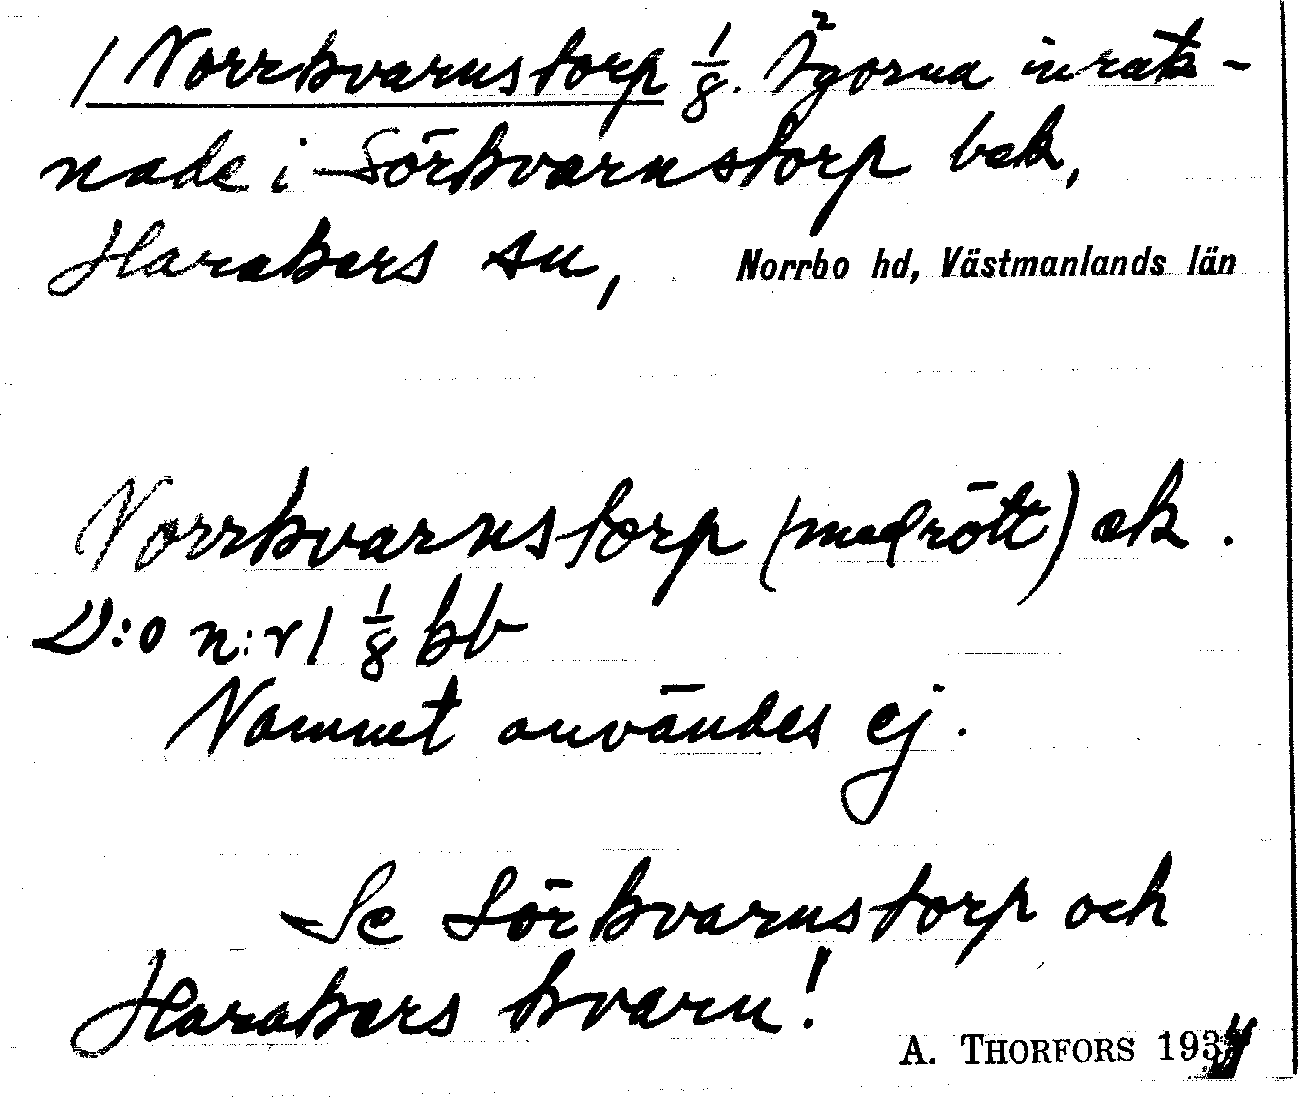 1 Norrkvarnstorp 1/8. Ägorna inräk-
nade i Sörkvarnstorp bek,
Harakers sn, Norrbo hd, Västmanlands län
Norrkvarnstorp (med rött) ek.
D:o n:r 1 1/8 kb
Namnet användes ej.
Se Sörkvarnstorp och
Harakers kvarn!
A. THORFORS 1934